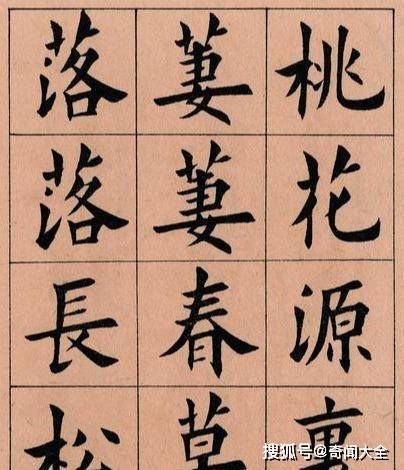 桃花源
萋萋春草
落落長松
搜狐号@奇闻大全